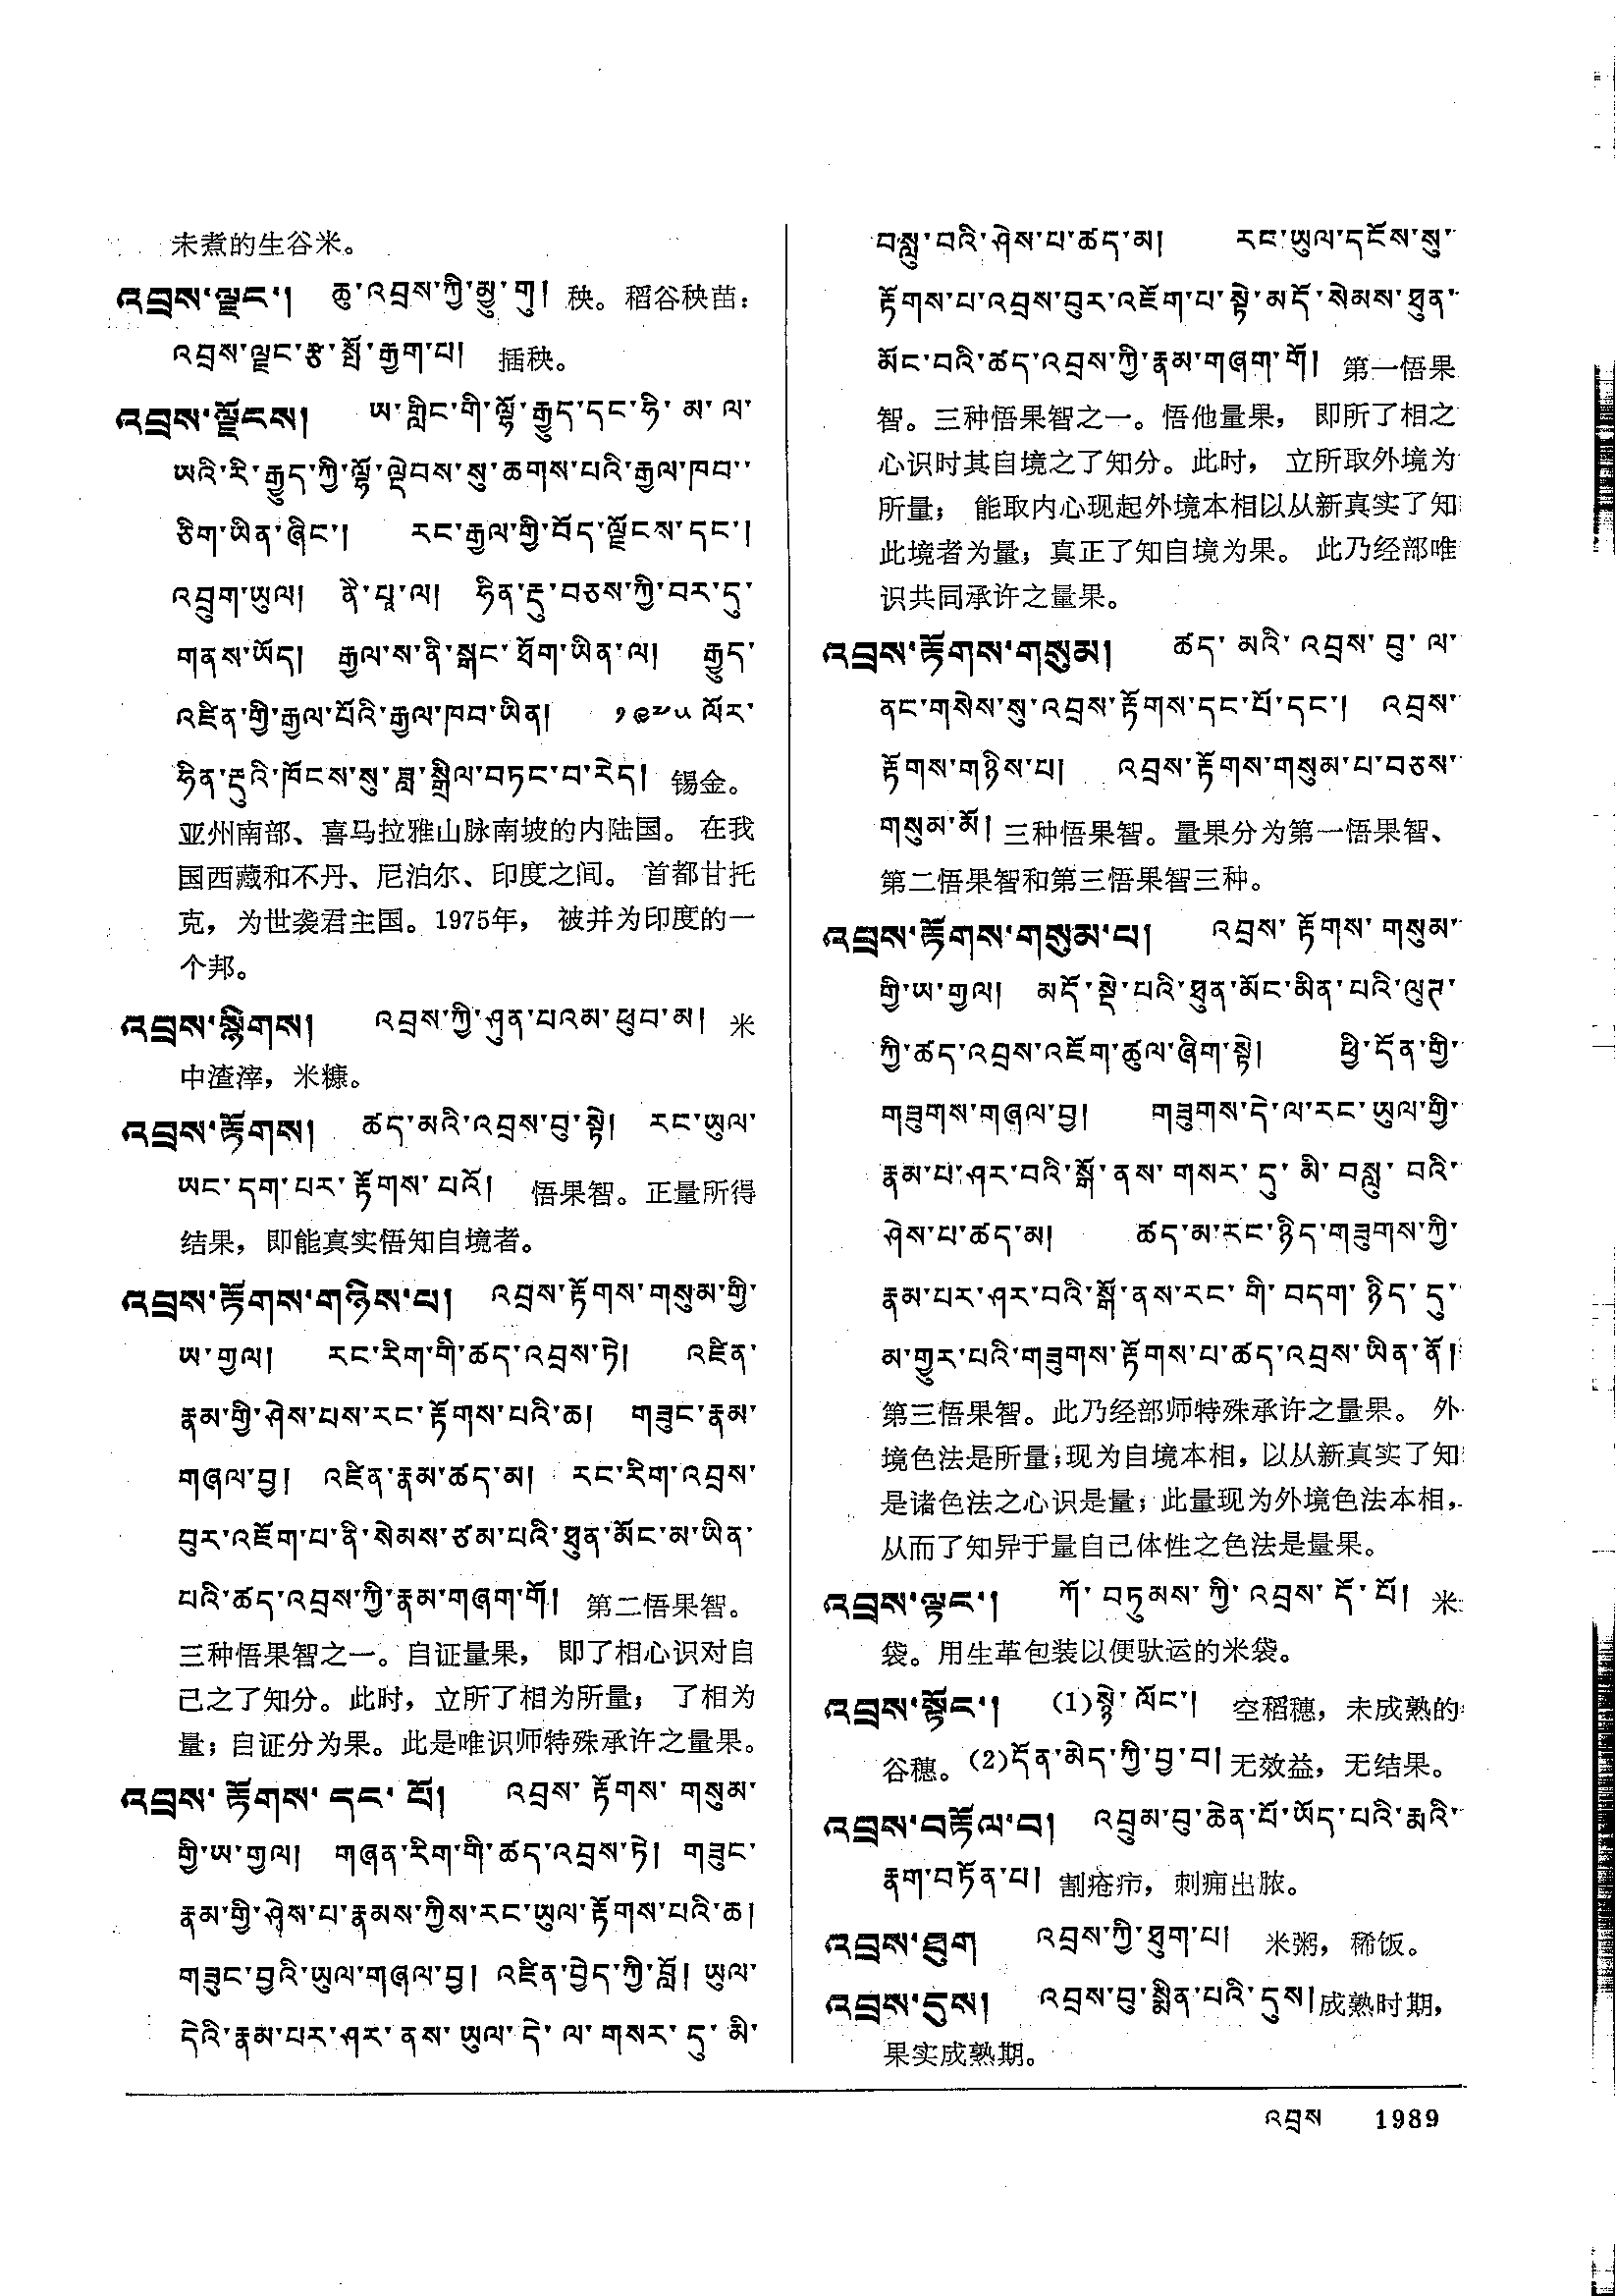 未煮的生谷米。
འབྲས་ལྗང་། ཆུ་འབྲས་ཀྱི་མྱུ་གུ། 秧。稻谷秧苗：
འབྲས་ལྗང་རྩ་སྤོ་རྒྱག་པ། 插秧。
འབྲས་ལྗོངས། ཨ་གླིང་གི་ལྷོ་རྒྱུད་དང་ཧི་མ་ལ་
ཡའི་རི་རྒྱུད་ཀྱི་ལྷོ་ལྡེབས་སུ་ཆགས་པའི་རྒྱལ་ཁབ་
ཅིག་ཡིན་ཞིང་། རང་རྒྱལ་གྱི་བོད་ལྗོངས་དང་།
འབྲུག་ཡུལ། ནེ་པཱ་ལ། ཧིན་རྡུ་བཅས་ཀྱི་བར་དུ་
གནས་ཡོད། རྒྱལ་ས་ནི་སྒང་ཐོག་ཡིན་ལ། རྒྱུད་
འཛིན་གྱི་རྒྱལ་པོའི་རྒྱལ་ཁབ་ཡིན། ༡༩༧༥ ལོར་
ཧིན་རྡུའི་ཁོངས་སུ་ཟླ་སྒྲིལ་བཏང་བ་རེད། 锡金。
亚州南部、喜马拉雅山脉南坡的内陆国。在我
国西藏和不丹、尼泊尔、印度之间。首都甘托
克，为世袭君主国。1975年，被并为印度的一
个邦。
འབྲས་སྙིགས། འབྲས་ཀྱི་ཤུན་པའམ་ཕུབ་མ། 米
中渣滓，米糠。
འབྲས་རྟོགས། ཚད་མའི་འབྲས་བུ་སྟེ། རང་ཡུལ་
ཡང་དག་པར་རྟོགས་པའོ། 悟果智。正量所得
结果，即能真实悟知自境者。
འབྲས་རྟོགས་གཉིས་པ། འབྲས་རྟོགས་གསུམ་གྱི་
ཡ་གྱལ། རང་རིག་གི་ཚད་འབྲས་ཏེ། འཛིན་
རྣམ་གྱི་ཤེས་པས་རང་རྟོགས་པའི་ཆ། གཟུང་རྣམ་
གཞལ་བྱ། འཛིན་རྣམ་ཚད་མ། རང་རིག་འབྲས་
བུར་འཇོག་པ་ནི་སེམས་ཙམ་པའི་ཐུན་མོང་མ་ཡིན་
པའི་ཚད་འབྲས་ཀྱི་རྣམ་གཞག་གོ། 第二悟果智。
三种悟果智之一。自证量果，即了相心识对自
己之了知分。此时，立所了相为所量；了相为
量；自证分为果。此是唯识师特殊承许之量果。
འབྲས་རྟོགས་དང་པོ། འབྲས་རྟོགས་གསུམ་
གྱི་ཡ་གྱལ། གཞན་རིག་གི་ཚད་འབྲས་ཏེ། གཟུང་
རྣམ་གྱི་ཤེས་པ་རྣམས་ཀྱིས་རང་ཡུལ་རྟོགས་པའི་ཆ།
གཟུང་བྱའི་ཡུལ་གཞལ་བྱ། འཛིན་བྱེད་ཀྱི་བློ། ཡུལ་
དེའི་རྣམ་པར་ཤར་ནས་ཡུལ་དེ་ལ་གསར་དུ་མི་
བསླུ་བའི་ཤེས་པ་ཚད་མ། རང་ཡུལ་དངོས་སུ་
རྟོགས་པ་འབྲས་བུར་འཇོག་པ་སྟེ་མདོ་སེམས་ཐུན་
མོང་བའི་ཚད་འབྲས་ཀྱི་རྣམ་གཞག་གོ། 第一悟果
智。三种悟果智之一。悟他量果，即所了相之
心识时其自境之了知分。此时，立所取外境为
所量；能取内心现起外境本相以从新真实了知
此境者为量；真正了知自境为果。此乃经部唯
识共同承许之量果。
འབྲས་རྟོགས་གསུམ། ཚད་མའི་འབྲས་བུ་ལ་
ནང་གསེས་སུ་འབྲས་རྟོགས་དང་པོ་དང་། འབྲས་
རྟོགས་གཉིས་པ། འབྲས་རྟོགས་གསུམ་པ་བཅས་
གསུམ་མོ། 三种悟果智。量果分为第一悟果智、
第二悟果智和第三悟果智三种。
འབྲས་རྟོགས་གསུམ་པ། འབྲས་རྟོགས་གསུམ་
གྱི་ཡ་གྱལ། མདོ་སྡེ་པའི་ཐུན་མོང་མིན་པའི་ལུཊ་
ཀྱི་ཚད་འབྲས་འཇོག་ཚུལ་ཞིག་སྟེ། ཕྱི་དོན་གྱི་
གཟུགས་གཞལ་བྱ། གཟུགས་དེ་ལ་རང་ཡུལ་གྱི་
རྣམ་པ་ཤར་བའི་སྒོ་ནས་གསར་དུ་མི་བསླུ་བའི་
ཤེས་པ་ཚད་མ། ཚད་མ་རང་ཉིད་གཟུགས་ཀྱི་
རྣམ་པར་ཤར་བའི་སྒོ་ནས་རང་གི་བདག་ཉིད་དུ་
མ་གྱུར་པའི་གཟུགས་རྟོགས་པ་ཚད་འབྲས་ཡིན་ནོ།
第三悟果智。此乃经部师特殊承许之量果。外
境色法是所量；现为自境本相，以从新真实了知
是诸色法之心识是量；此量现为外境色法本相，
从而了知异于量自己体性之色法是量果。
འབྲས་ལྟང་། ཀོ་བཏུམས་ཀྱི་འབྲས་དོ་པོ། 米
袋。用生革包装以便驮运的米袋。
འབྲས་སྟོང་། (1)སྙེ་ལོང་། 空稻穗，未成熟的
谷穗。(2)དོན་མེད་ཀྱི་བྱ་བ། 无效益，无结果。
འབྲས་བརྟོལ་བ། འབྲུམ་བུ་ཆེན་པོ་ཡོད་པའི་རྨའི་
རྣག་བཏོན་པ། 割疮疖，刺痈出脓。
འབྲས་ཐུག འབྲས་ཀྱི་ཐུག་པ། 米粥，稀饭。
འབྲས་དུས། འབྲས་བུ་སྨིན་པའི་དུས། 成熟时期，
果实成熟期。
འབྲས 1989